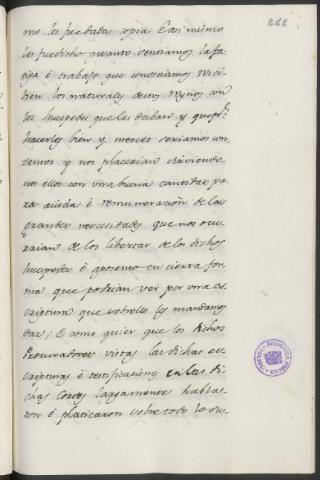 242
mo les fue dada copia; E asi mismo
les fue dicho quanto sentiamos la fa-
tiga é trabajo que conosciamos resci-
bien los naturales destos reynos con
los huespedes que les daban y que por
hacerles bien y merced seriamos con-
tentos y nos placerian sirviendo
nos ellos con una buena cantidat pa
ra ajuda é remuneracion de las
grandes necesidades que nos ocu-
rrian de los libertar de los dichos
huespedes é aposento en cierta for-
ma que podrian ver por una es-
criptura que sobrello les mandamos
dar; E como quier que los dichos
Procuradores vistas las dichas es-
cripturas é certificaciones en las di-
chas Cortes largamente habla-
ron é platicaron sobre todo lo su-
BIBLIOTECA PUBLICA
TOLEDO